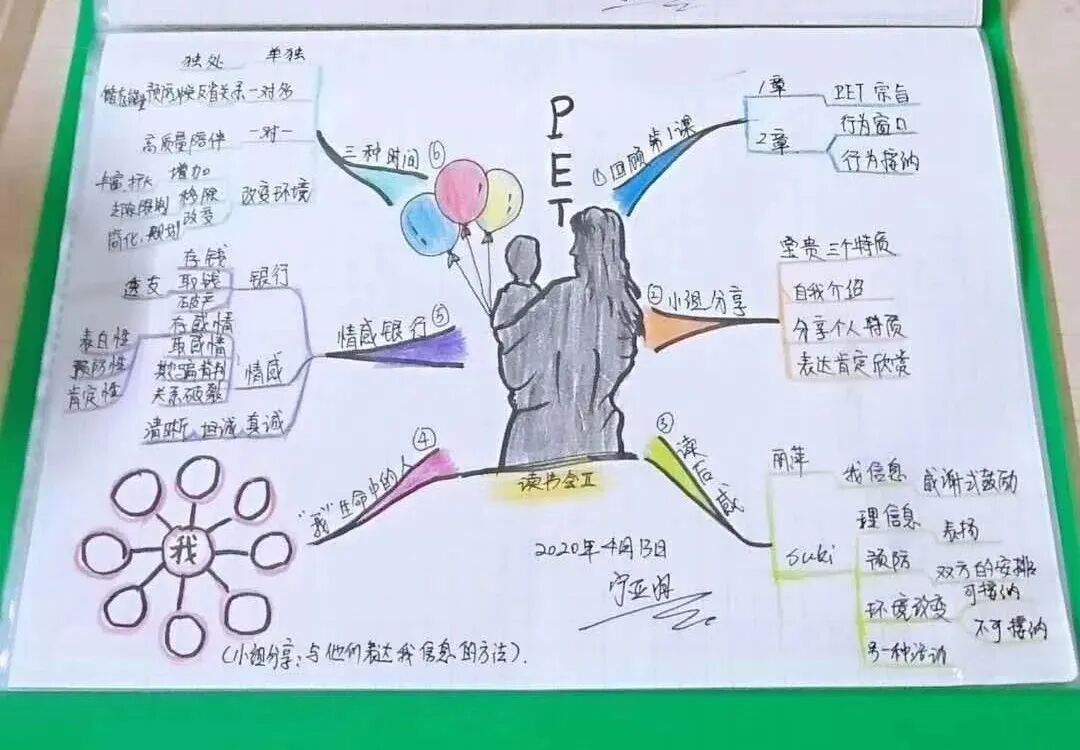 PET
读书会Ⅱ
2020年4月13日
① 回顾第1课
1章
PET宗旨
2章
行为窗口
行为接纳
② 小组分享
宝贵三个特质
自我介绍
分享个人特质
表达肯定欣赏
③ 读后感
丽萍
我信息
感谢式鼓励
suki
理信息
表扬
预防
双方的安排
环境改变
可接纳
不可接纳
另一种活动
④ “我”生命中的人
我
(小组分享：与他们表达我信息的方法).
⑤ 情感银行
银行
存钱
取钱
破产
透支
情感
存感情
取感情
关系破裂
表白性
预防性
肯定性
清晰 坦诚 真诚
⑥ 三种时间
单独
独处
一对多
一对一
高质量陪伴
改变环境
增加
移除
改变
丰富.扩大
简化.规划